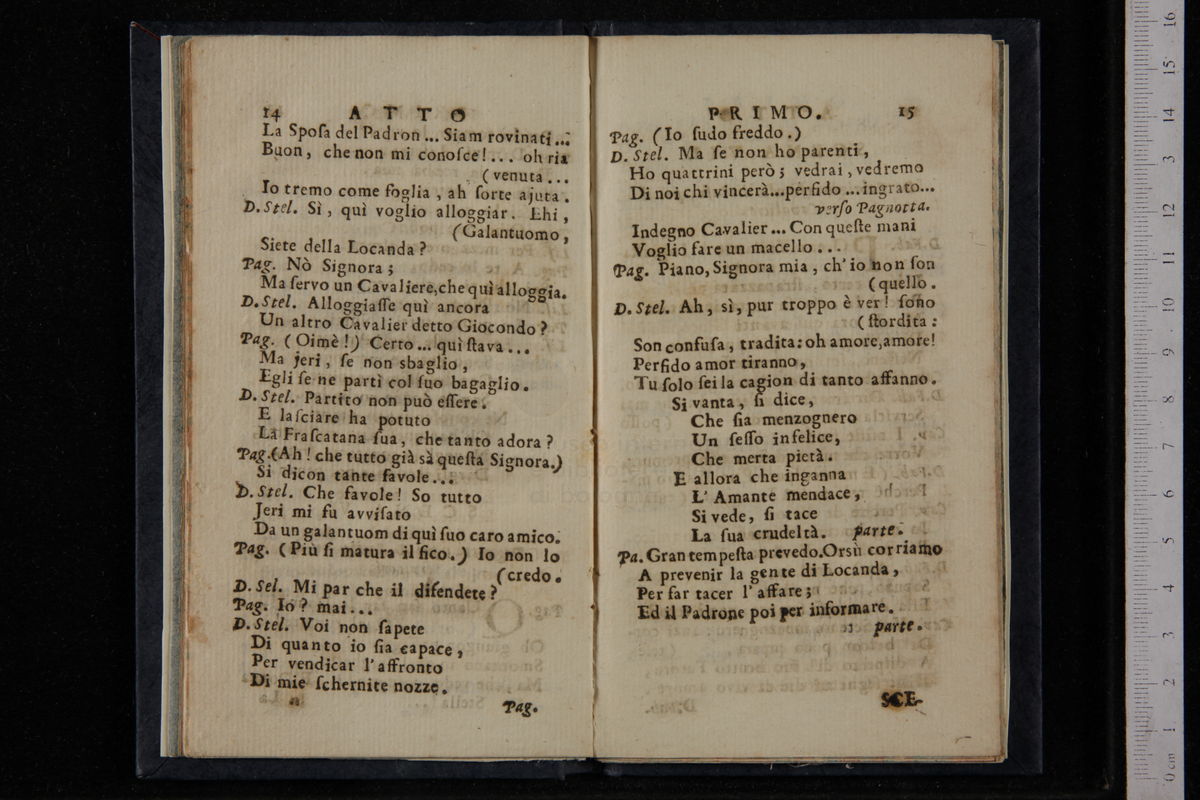 14 ATTO
La Sposa del Padron ... Siam rovinati ...
Buon, che non mi conosce! ... oh ria
(venuta ...
Io tremo come foglia, ah sorte ajuta.
D. Stel. Sì, quì voglio alloggiar. Ehi,
(Galantuomo,
Siete della Locanda?
Pag. Nò Signora;
Ma servo un Cavaliere, che quì alloggia.
D. Stel. Alloggiasse quì ancora
Un altro Cavalier detto Giocondo?
Pag. (Oimè!) Certo ... quì stava ...
Ma jeri, se non sbaglio,
Egli se ne partì col suo bagaglio.
D. Stel. Partito non può essere.
E lasciare ha potuto
La Frascatana sua, che tanto adora?
Pag. (Ah! che tutto già sà questa Signora.)
Si dicon tante favole...
D. Stel. Che favole! So tutto
Jeri mi fu avvisato
Da un galantuom di quì suo caro amico.
Pag. (Più si matura il fico.) Io non lo
(credo.
D. Sel. Mi par che il difendete?
Pag. Io? mai...
D. Stel. Voi non sapete
Di quanto io sia capace,
Per vendicar l'affronto
Di mie schernite nozze.
Pag.
PRIMO. 15
Pag. (Io sudo freddo.)
D. Stel. Ma se non ho parenti,
Ho quattrini però; vedrai, vedremo
Di noi chi vincerà...perfido ...ingrato...
verso Pagnotta.
Indegno Cavalier ... Con queste mani
Voglio fare un macello ...
Pag. Piano, Signora mia, ch'io non son
(quello.
D. Stel. Ah, sì, pur troppo è ver! sono
(stordita:
Son confusa, tradita: oh amore, amore!
Perfido amor tiranno,
Tu solo sei la cagion di tanto affanno.
Si vanta, si dice,
Che sia menzognero
Un sesso infelice,
Che merta pietà.
E allora che inganna
L'Amante mendace,
Si vede, si tace
La sua crudeltà. parte.
Pa. Gran tempesta prevedo. Orsù corriamo
A prevenir la gente di Locanda,
Per far tacer l'affare;
Ed il Padrone poi per informare.
parte.
SCE-
0 cm 1 2 3 4 5 6 7 8 9 10 11 12 13 14 15 16